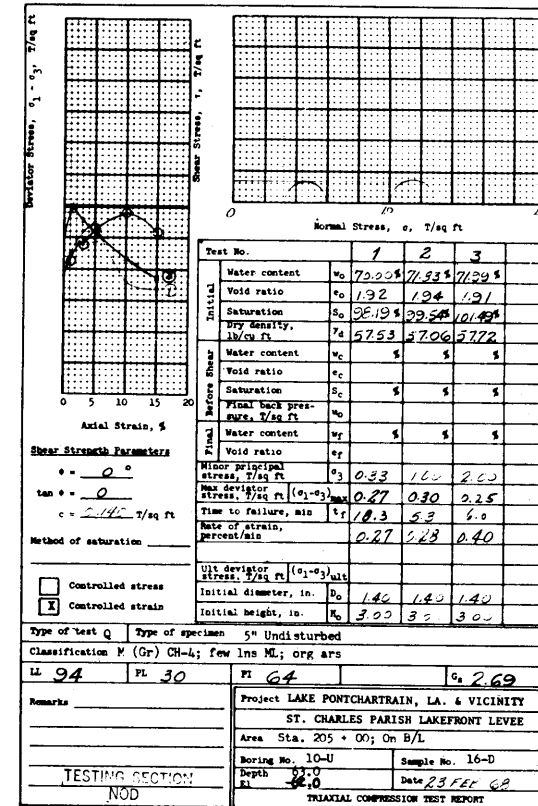 Deviator Stress, σ1 - σ3, T/sq ft
Shear Stress, τ, T/sq ft
0
Normal Stress, σ, T/sq ft
0 5 10 15 20
Axial Strain, %
Shear Strength Parameters
φ = 0 °
tan φ = 0
c = 0.140 T/sq ft
Method of saturation
Controlled stress
X Controlled strain
Test No. 1 2 3
Initial
Water content wo 70.00 % 71.93 % 71.99 %
Void ratio eo 1.92 1.94 1.91
Saturation So 98.19 % 99.54 % 101.49 %
Dry density, lb/cu ft γd 57.53 57.06 57.72
Before Shear
Water content wc % % %
Void ratio ec
Saturation Sc % % %
Final back pressure, T/sq ft uo
Final
Water content wf % % %
Void ratio ef
Minor principal stress, T/sq ft σ3 0.33 1.00 2.00
Max deviator stress, T/sq ft (σ1-σ3)max 0.27 0.30 0.25
Time to failure, min tf 18.3 5.3 6.0
Rate of strain, percent/min 0.27 0.28 0.40
Ult deviator stress, T/sq ft (σ1-σ3)ult
Initial diameter, in. Do 1.40 1.40 1.40
Initial height, in. Ho 3.00 3.00 3.00
Type of test Q Type of specimen 5" Undisturbed
Classification M (Gr) CH-4; few lns ML; org ars
LL 94 PL 30 PI 64 Gs 2.69
Remarks
TESTING SECTION
NOD
Project LAKE PONTCHARTRAIN, LA. & VICINITY
ST. CHARLES PARISH LAKEFRONT LEVEE
Area Sta. 205 + 00; On B/L
Boring No. 10-U Sample No. 16-D
Depth 63.0
El
Date 23 FEB 68
TRIAXIAL COMPRESSION TEST REPORT